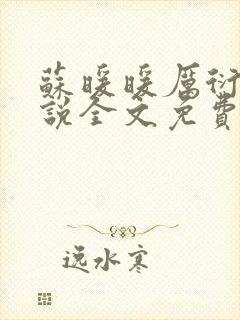 蘇暖暖厲衍
說全文免費
逸水寒